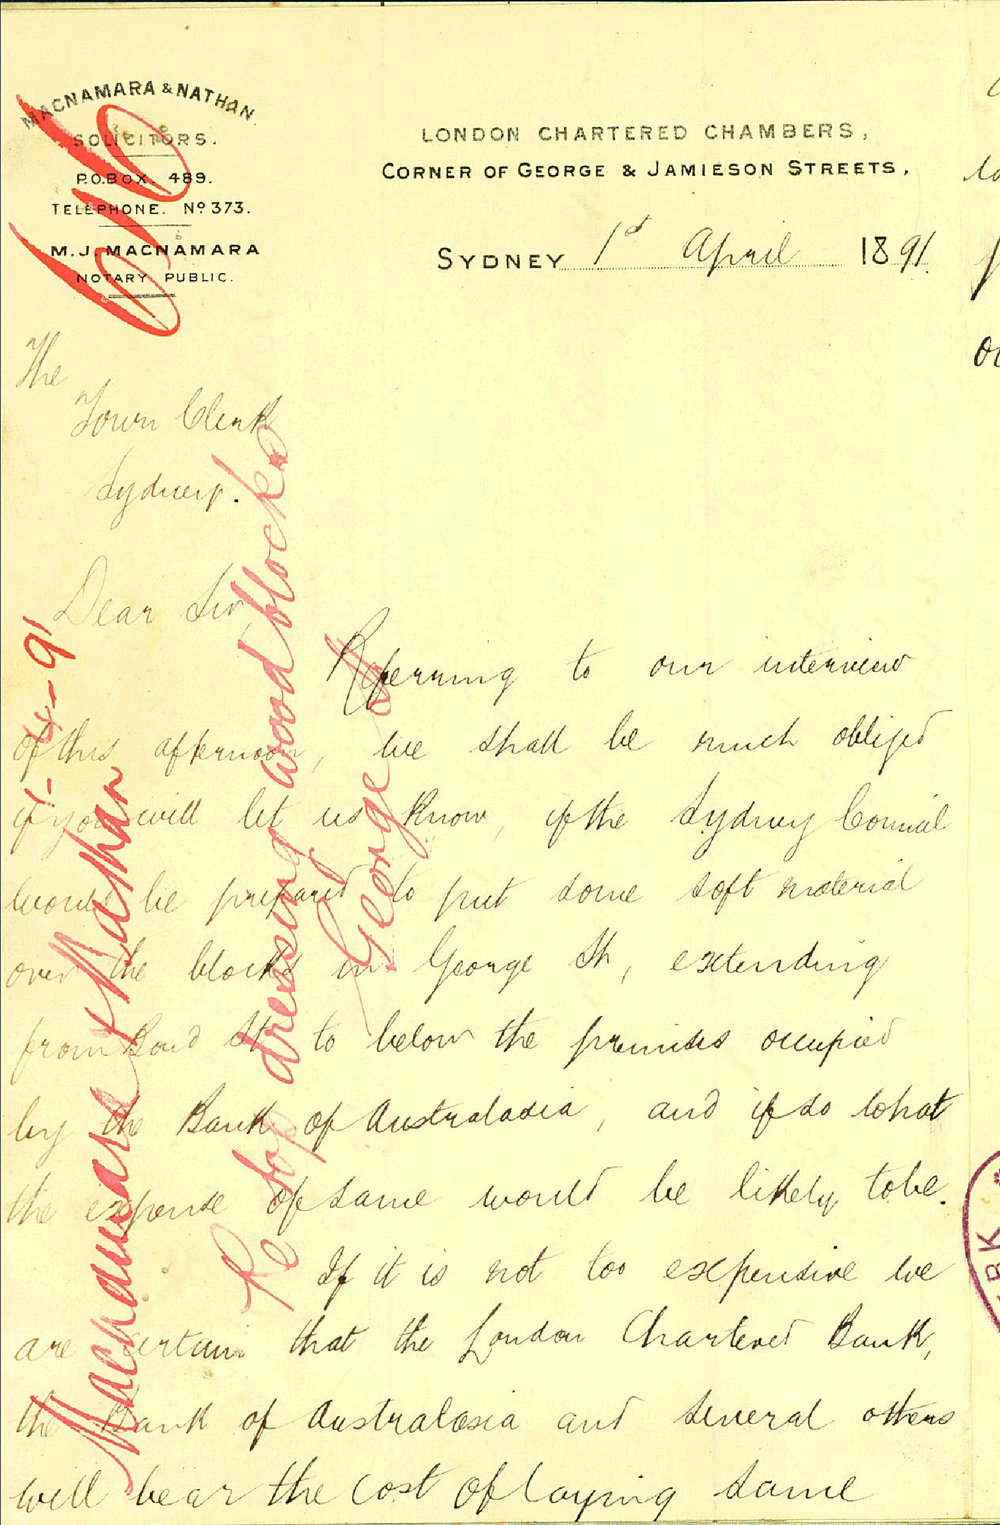 MACNAMARA & NATHAN.
SOLICITORS.
P.O. BOX. 489.
TELEPHONE. No 373.
M. J. MACNAMARA
NOTARY PUBLIC.
616
LONDON CHARTERED CHAMBERS,
CORNER OF GEORGE & JAMIESON STREETS,
SYDNEY 1st April 1891.
The
Town Clerk
Sydney.
Dear Sir,
Referring to our interview
of this afternoon, we shall be much obliged
if you will let us know, if the Sydney Council
would be prepared to put some soft material
over the blocks in George St, extending
from Bond St to below the premises occupied
by the Bank of Australasia, and if so what
the expense of same would be likely to be.
If it is not too expensive we
are certain that the London Chartered Bank,
the Bank of Australasia and several others
will bear the cost of laying same
1-4-91
Macnamara & Nathan
Re top dressing wood blocks
George St